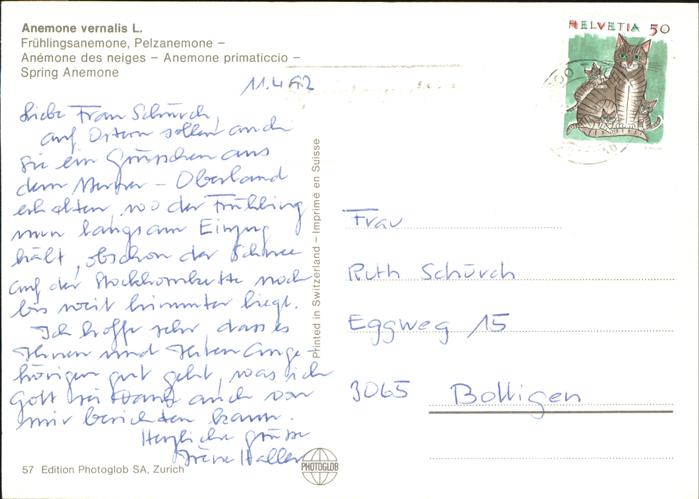 Anemone vernalis L.
Frühlingsanemone, Pelzanemone –
Anémone des neiges – Anemone primaticcio –
Spring Anemone
HELVETIA 50
11.4.92
Liebe Frau Schürch,
auf Ostern sollen auch
Sie ein Grüsschen aus
dem Berner – Oberland
erhalten, wo der Frühling
nun langsam Einzug
hält, obschon der Schnee
auf der Stockhornkette noch
bis weit hinunter liegt.
Ich hoffe sehr, dass es
Ihnen und Ihren Ange-
hörigen gut geht, was ich
Gott sei Dank auch von
mir berichten kann.
Herzliche Grüsse
Irène Haller
Printed in Switzerland – Imprimé en Suisse
Frau
Ruth Schürch
Eggweg 15
3065 Bolligen
57 Edition Photoglob SA, Zurich
PHOTOGLOB